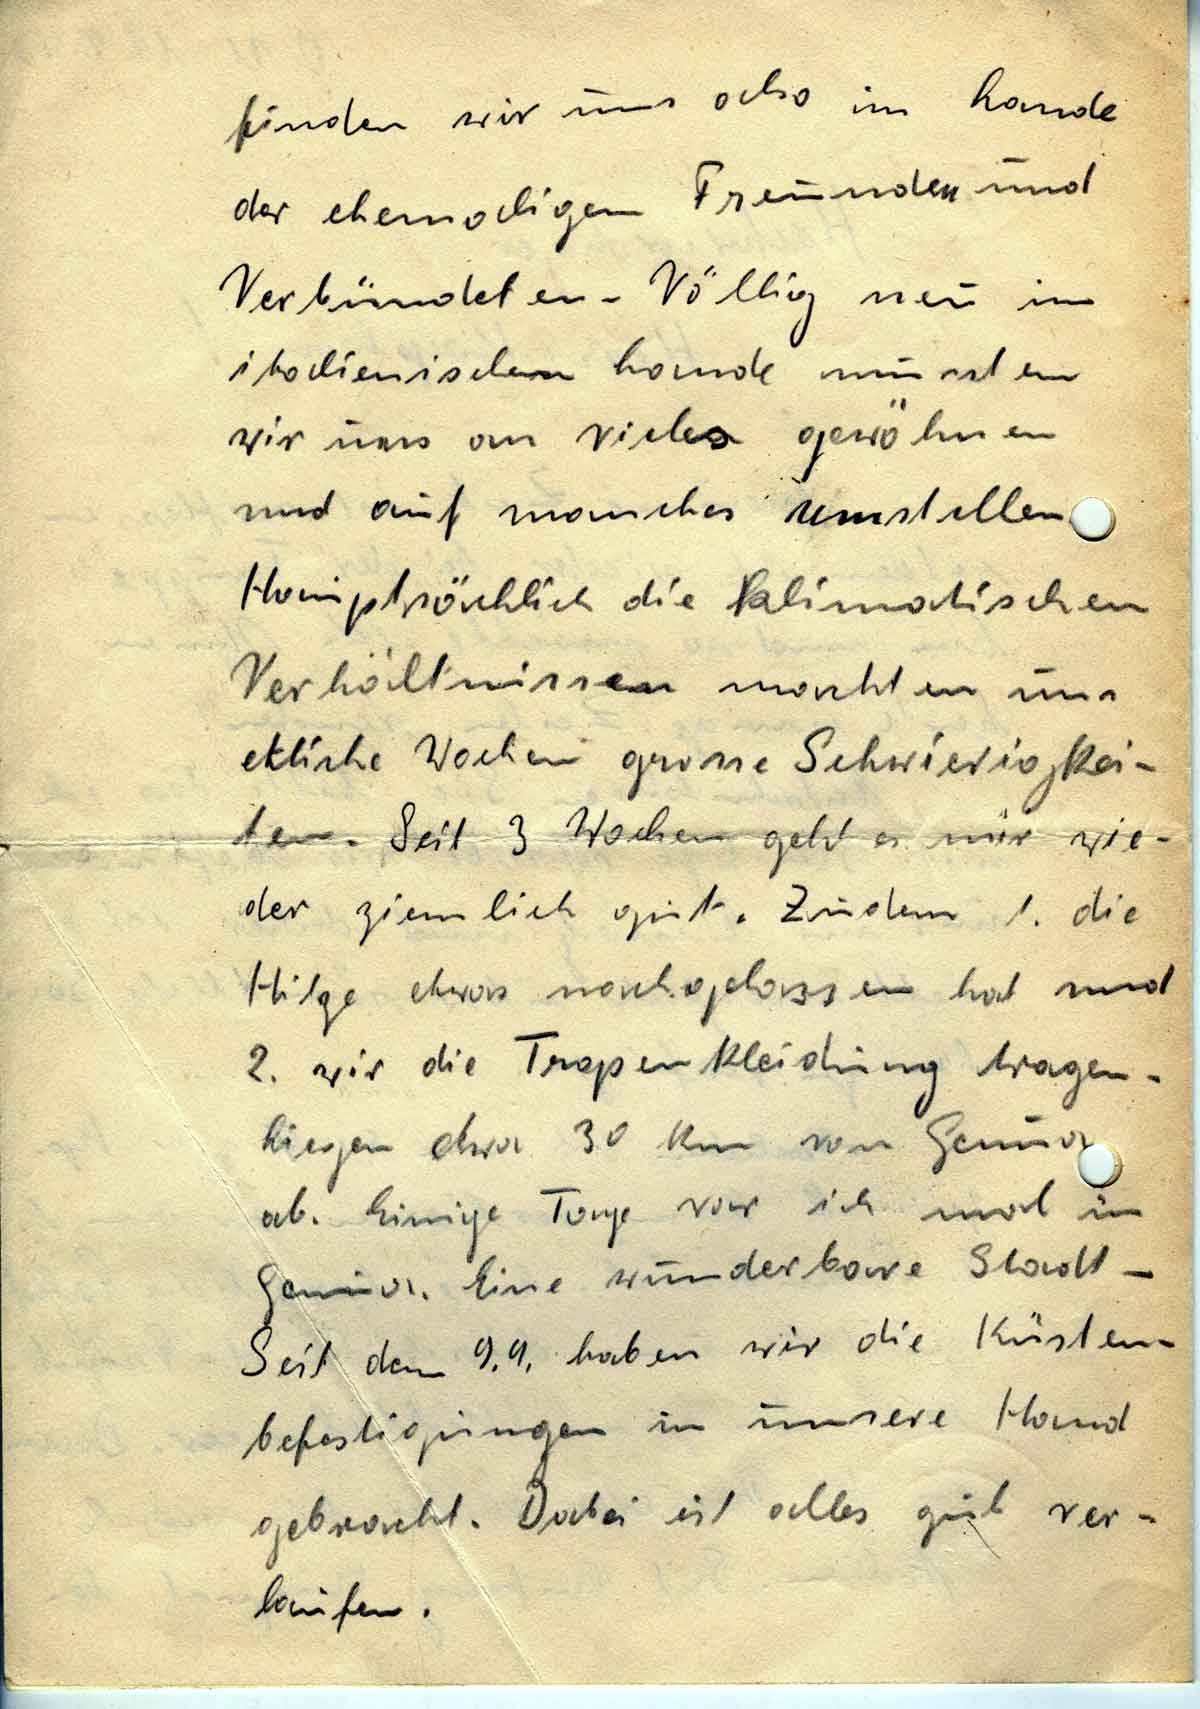 finden wir uns also im Lande
der ehemaligen Freunden und
Verbündeten. Völlig neu im
italienischen Lande mussten
wir uns an vieles gewöhnen
und auf manches umstellen
Hauptsächlich die klimatischen
Verhältnissen machten uns
etliche Wochen grosse Schwierigkei-
ten. Seit 3 Wochen geht es mir wie-
der ziemlich gut. Zudem 1. die
Hitze etwas nachgelassen hat und
2. wir die Tropenkleidung tragen.
Liegen etwa 30 km von Genua
ab. Einige Tage war ich mal in
Genua. Eine wunderbare Stadt.
Seit dem 9.9. haben wir die Küsten
befestigungen in unsere Hand
gebracht. Dabei ist alles gut ver-
laufen.